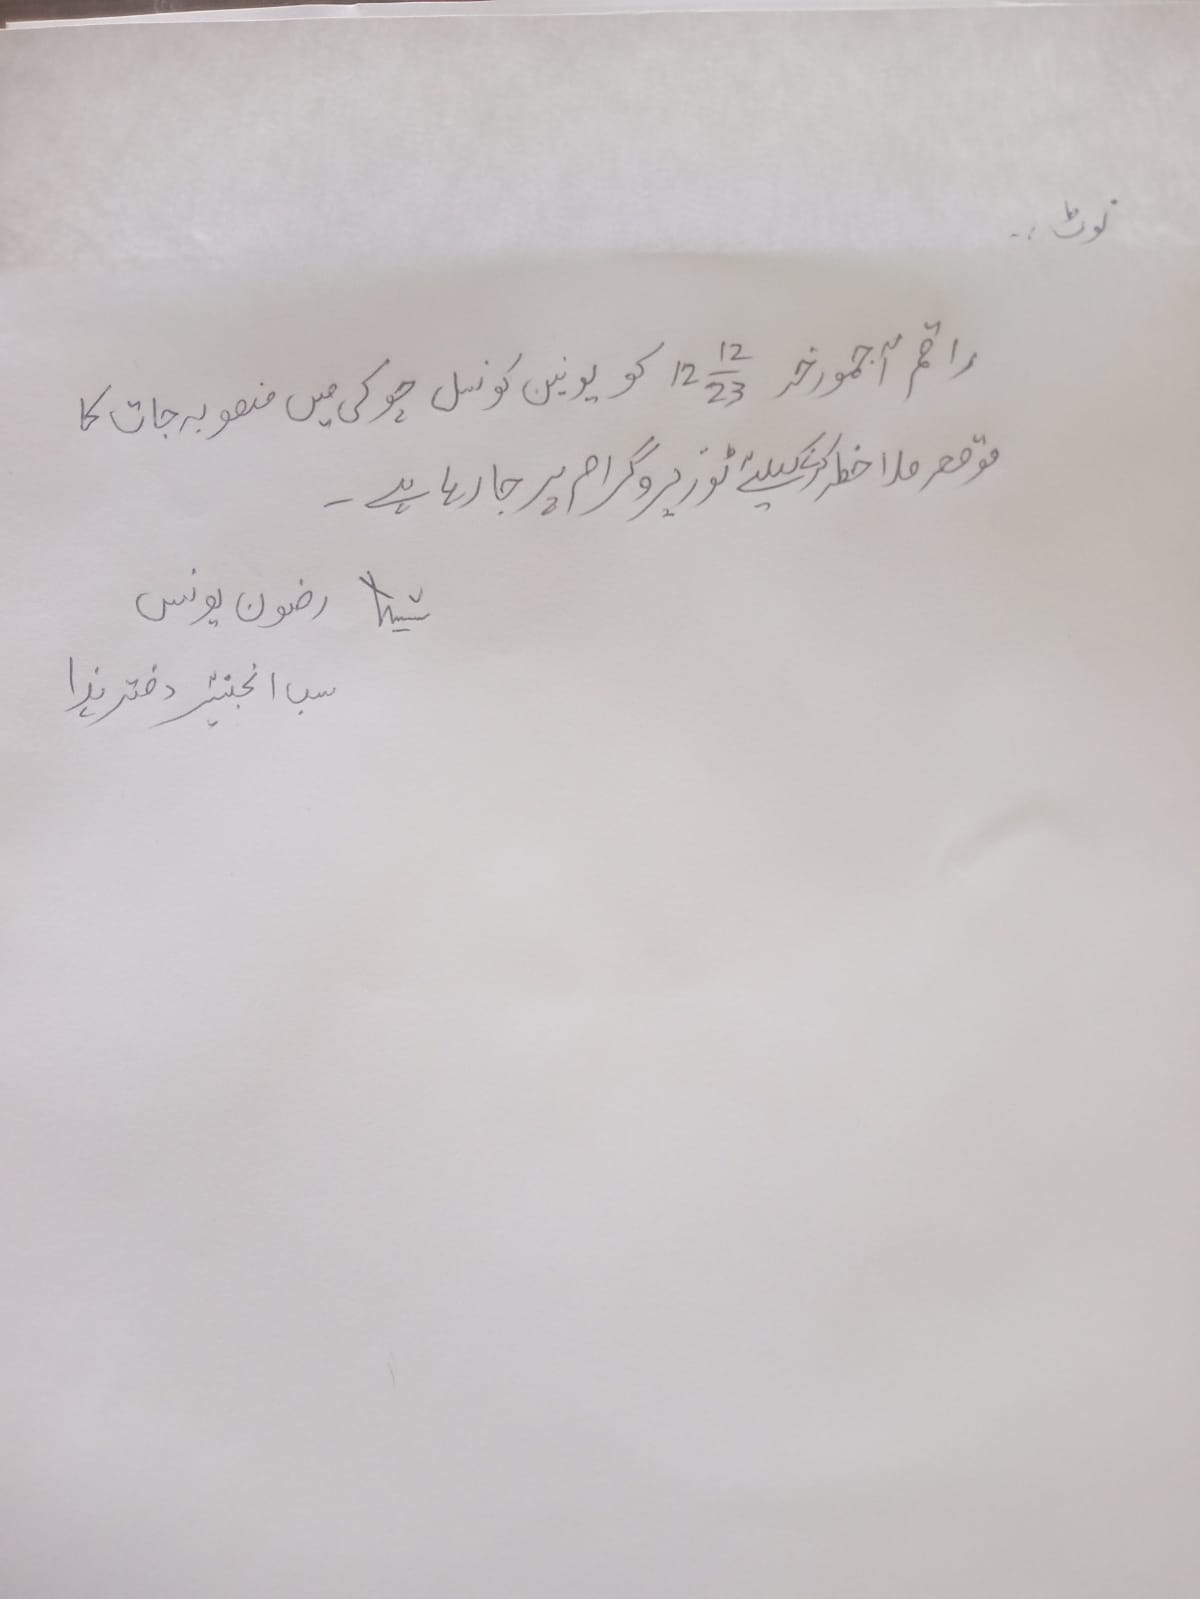 نوٹ :-
راقم آجمورخہ 12 12/23 کو یونین کونسل چوکی میں منصوبہ جات کا
موقعہ ملاخطہ کرنے کیلئے ٹور پروگرام پر جا رہا ہے ۔
رضون یونس
سب انجنئیر دفتر ہذا